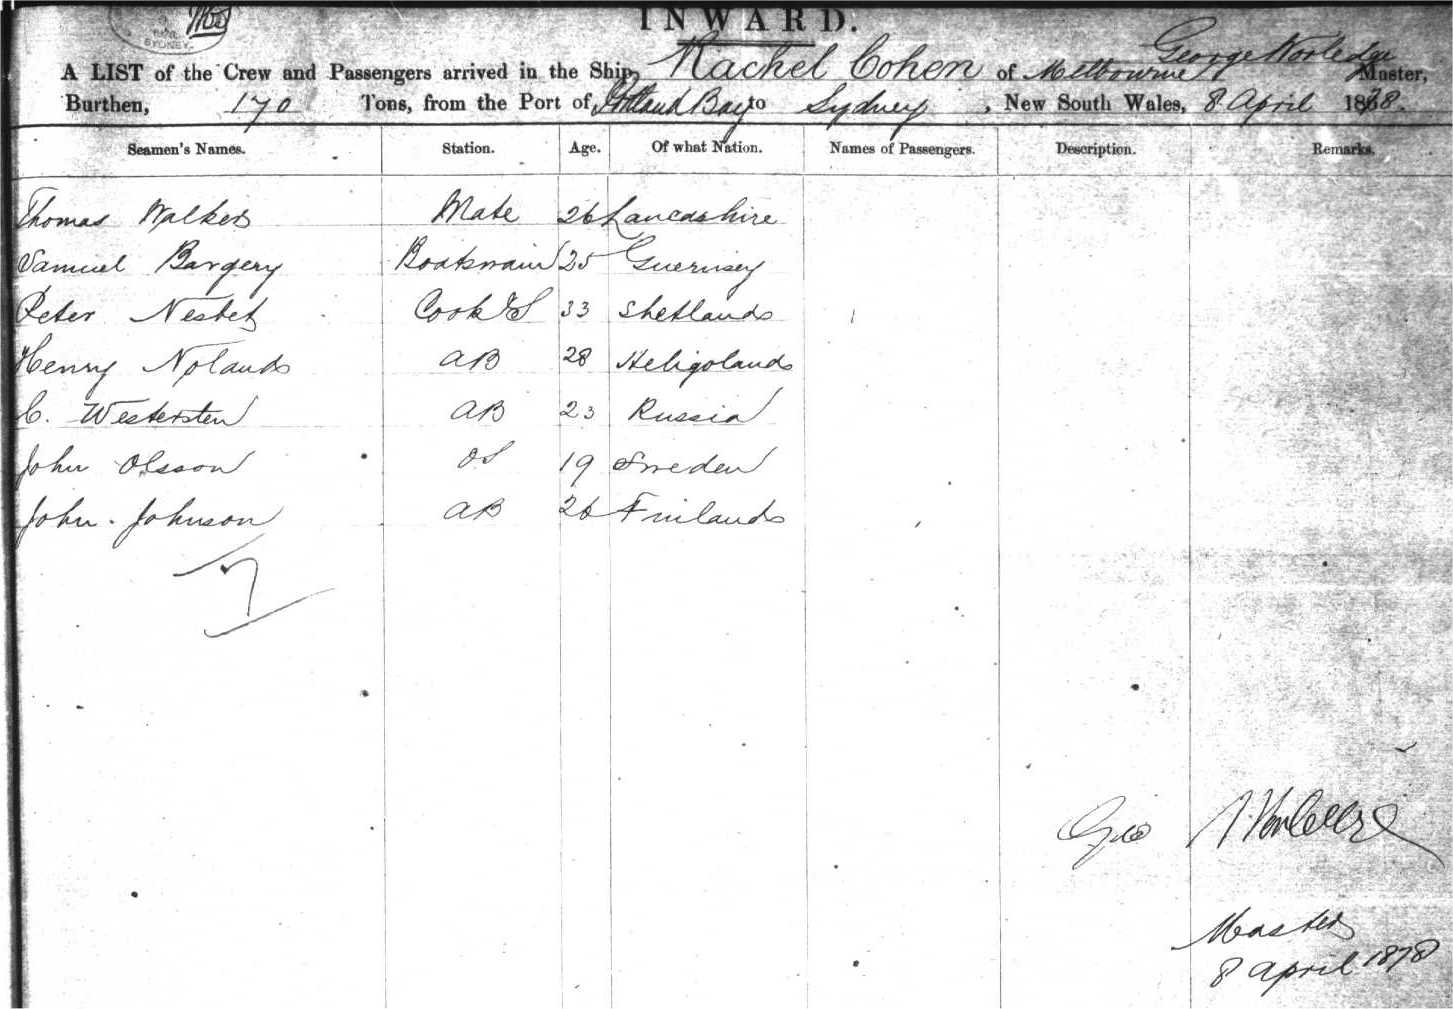 SYDNEY
INWARD.
George Norledge
A LIST of the Crew and Passengers arrived in the Ship, Rachel Cohen of Melbourne Master,
Burthen, 170 Tons, from the Port of Portland Bay to Sydney, New South Wales, 8 April 1878.
Seamen's Names. Station. Age. Of what Nation. Names of Passengers. Description. Remarks.
Thomas Walker Mate 26 Lancashire
Samuel Bargery Boatswain 25 Guernsey
Peter Nesbet Cook & S 33 Shetlands
Henry Nolands AB 28 Heligoland
C. Westersten AB 23 Russia
John Olsson OS 19 Sweden
John Johnson AB 26 Finland
7
Geo
Master
8 April 1878